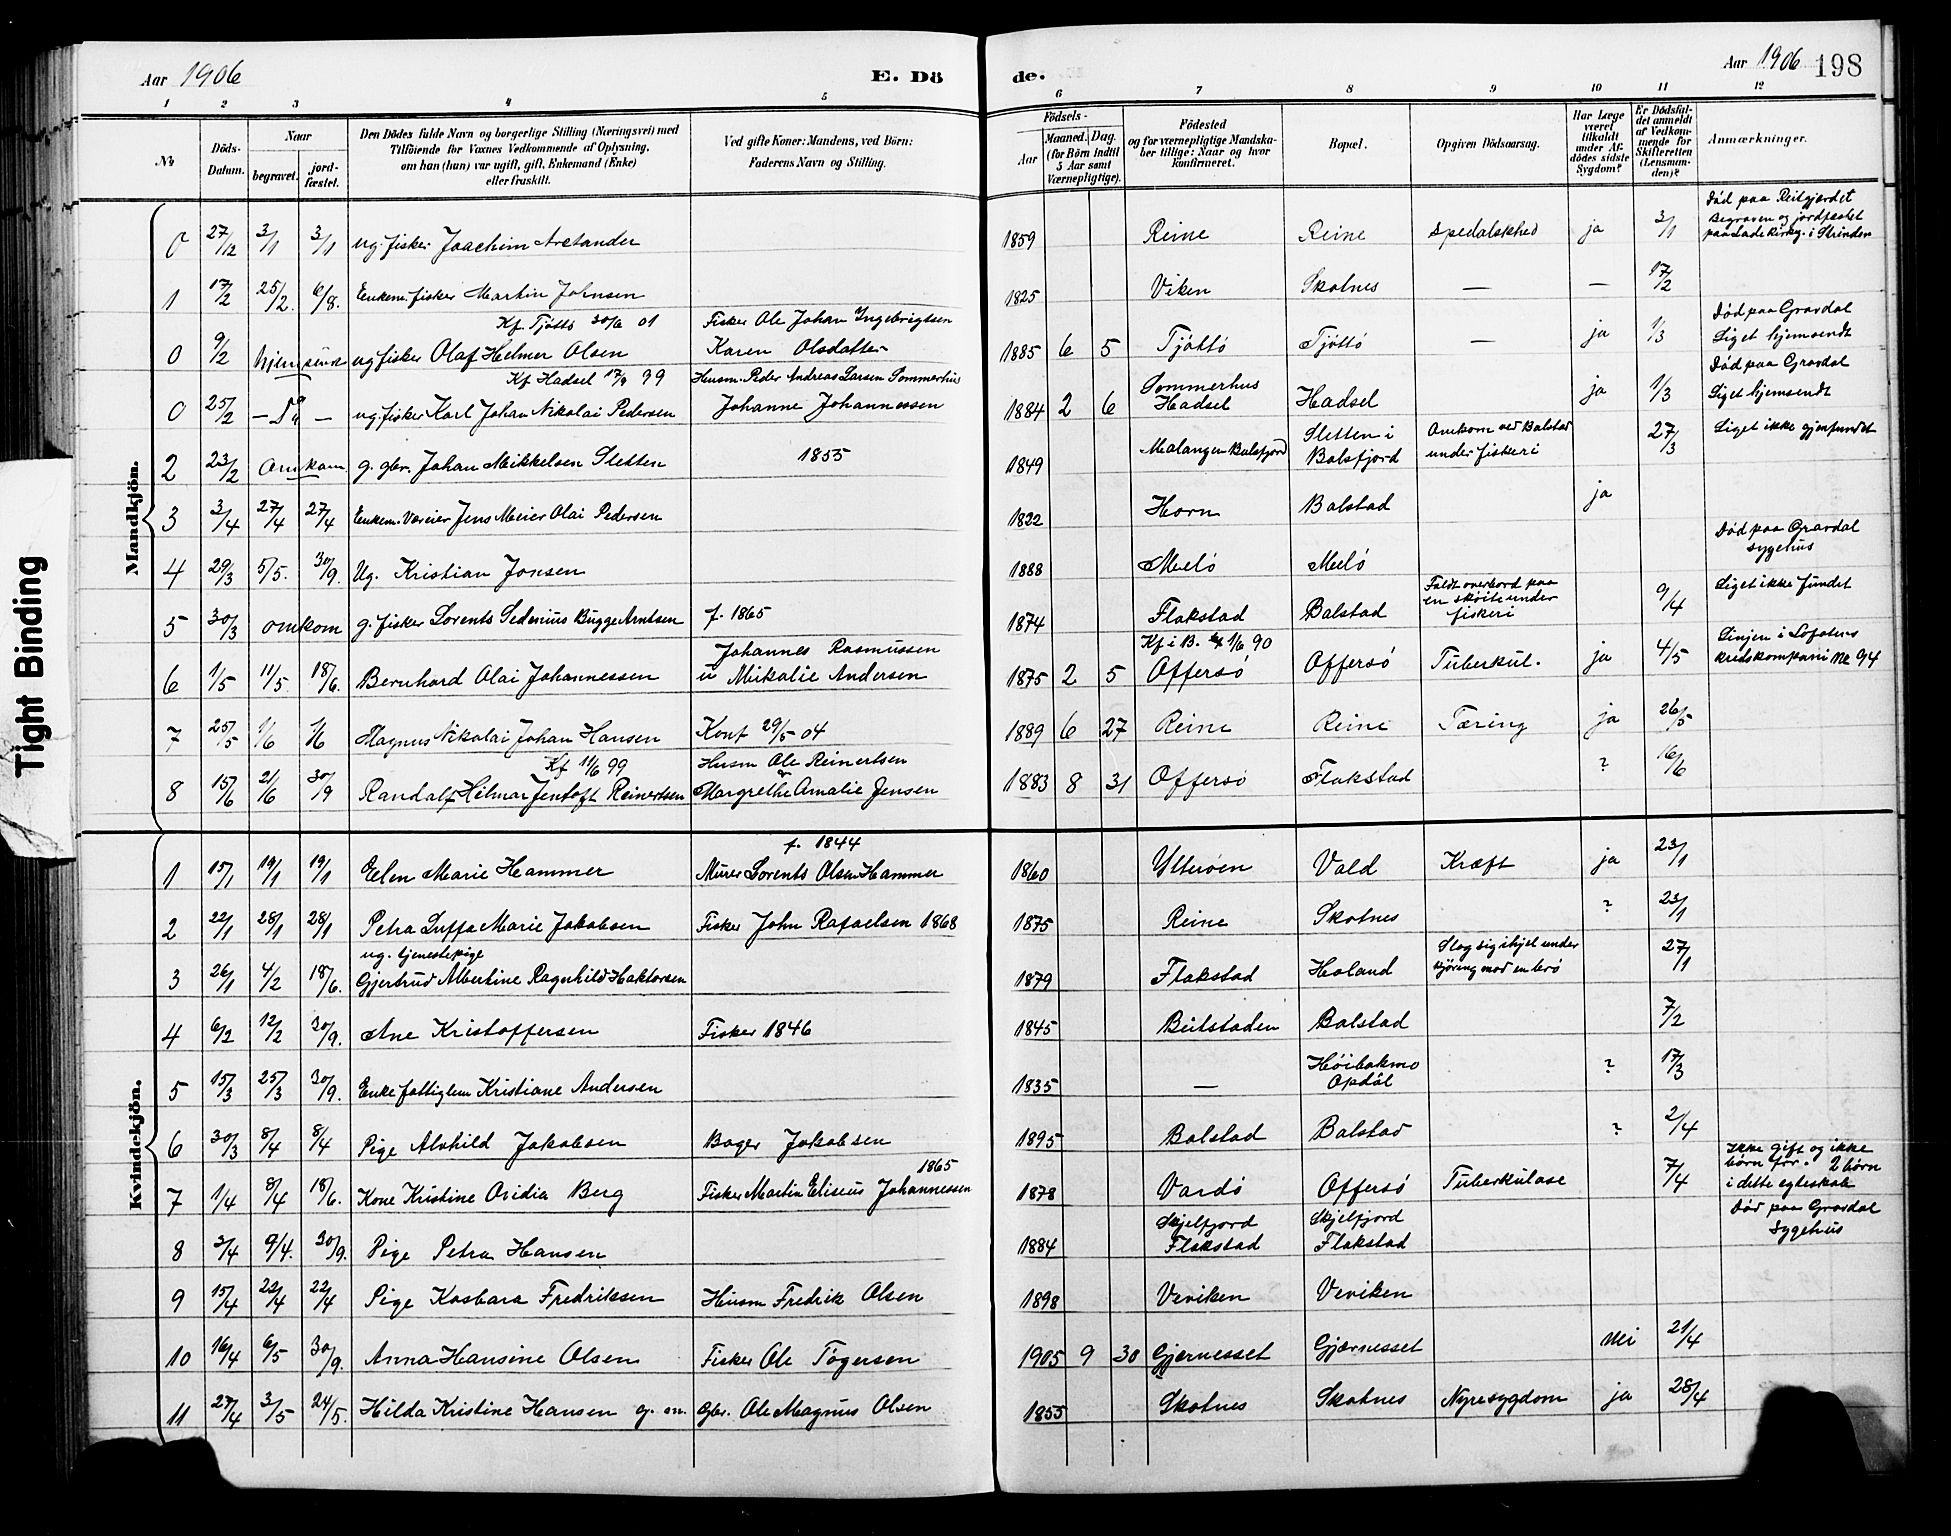 Aar 1906
E. Dö
de.
Aar 1906 198
1 2 3 4 5 6 7 8 9 10 11 12
No
Döds-Datum.
Naar
begravet.
jord-fæstet.
Den Dödes fulde Navn og borgerlige Stilling (Næringsvei) med
Tilföiende for Voxnes Vedkommende af Oplysning,
om han (hun) var ugift, gift, Enkemand (Enke)
eller fraskilt.
Ved gifte Koner: Mandens, ved Börn:
Faderens Navn og Stilling.
Födsels-
Aar
Maaned. Dag.
(for Börn indtil
5 Aar samt
Værnepligtige).
Födested
og for værnepligtige Mandska-
ber tillige: Naar og hvor
konfirmeret.
Bopæl.
Opgiven Dödsaarsag.
Har Læge
været
tilkaldt
under Af-
dödes sidste
Sygdom?
Er Dödsfal-
det anmeldt
af Vedkom-
mende for
Skifteretten
(Lensman-
den)?
Anmærkninger.
Tight Binding
Mandkjön.
0 27/12 3/1 3/1 ug. fisker Joachim Arctander 1859 Reine Reine Spedalskhed ja 3/1 Död paa Reitgjærdet
Begraven og jordfæstet
paa Lade kirkg. i Strinden
1 17/2 25/2. 6/8. Enkem. fisker Martin Johnsen 1825 Viken Skotnes — — 17/2
Kf. Tjöttö 30/6 01 Fisker Ole Johan Ingebrigtsen Död paa Gravdal
0 9/2 hjemsendt ug fisker Olaf Helmer Olsen Karen Olsdatter 1885 6 5 Tjöttö Tjöttö — ja 1/3 Liget hjemsendt
Kf Hadsel 17/9 99 Husm. Peder Andreas Larsen Sommerhus Sommerhus Död paa Gravdal
0 25/2 — Do — ug. fisker Karl Johan Nikolai Pedersen Johanne Johannessen 1884 2 6 Hadsel Hadsel ja 1/3 Liget hjemsendt
2 23/2 Omkom. g. gbr. Johan Mikkelsen Sletten 1855 1849 Malangen Balsfjord Sletten i Balsfjord Omkom ved Balstad under fiskeri 27/3 Liget ikke gjenfundet
3 3/4 27/4 27/4 Enkem. Væreier Jens Meier Olai Pedersen 1822 Horn Balstad ja
4 29/3 5/5. 30/9. Ug. Kristian Jonsen 1888 Melö Melö Död paa Gravdal sygehus
5 30/3 omkom g. fisker Lorents Sedenius Bugge Arntsen f. 1865 1874 Flakstad Balstad Faldt overbord paa en sköite under fiskeri 9/4 Liget ikke fundet
Johannes Rasmussen Kf i B. 1/6 90 Linjen i Lofotens
6 1/5 11/5 18/6. Bernhard Olai Johannessen u Mikalie Andersen 1875 2 5 Offersö Offersö Tuberkul. ja 4/5 kredskompani No 94
7 25/5 1/6 1/6 Magnus Nikolai Johan Hansen Konf 29/5 04 1889 6 27 Reine Reine Tæring ja 26/5
Kf 11/6 99 Husm Ole Reinertsen
8 15/6 21/6 30/9 Randalf Hilmar Jentoft Reinertsen Margrethe Amalie Jensen 1883 8 31 Offersö Flakstad ? 16/6
Kvindekjön.
f. 1844
1 15/1 19/1 19/1 Elen Marie Hammer Murer Lorents Olsen Hammer 1860 Ytteröen Vold Kræft ja 23/1
2 22/1 28/1 28/1 Petra Luffa Marie Jakobsen Fisker John Rafaelsen 1868 1875 Reine Skotnes ? 23/1
ug. tjenestepige
3 26/1 4/2 18/6. Gjertrud Albertine Ragnhild Haktorsen 1879 Flakstad Holand Slog sig ihjel under kjöring med en 27/1
4 6/2 12/2 30/9. Ane Kristoffersen Fisker 1846 1845 Beitstaden Balstad 7/2
5 15/3 25/3 30/9. Enke fattiglem Kristiane Andersen 1835 — Höibakmo Opdöl ? 17/3
6 30/3 8/4 8/4 Pige Alvhild Jakobsen Bager Jakobsen 1895 Balstad Balstad ? 2/4
7 1/4 8/4 18/6. Kone Kristine Ovidia Berg Fisker Martin Eliseus Johannessen 1865 1878 Vardö Offersö Tuberkulose 7/4 Ikke gift og ikke
börn för. 2 börn
i dette egteskab
8 3/4 9/4. 30/9. Pige Petra Hansen 1884 Skjelfjord Flakstad Skjelfjord Flakstad Död paa Gravdal Sygehus
9 15/4 22/4 22/4 Pige Kasbara Fredriksen Husm Fredrik Olsen 1898 Veviken Veviken
10 16/4 6/5 30/9. Anna Hansine Olsen Fisker Ole Tögersen 1905 9 30 Gjernesset Gjærnesset Nei 21/4
11 27/4 3/5 24/5. Hilda Kristine Hansen g. m. Gbr. Ole Magnus Olsen 1855 Skotnes Skotnes Nyresygdom ja 28/4